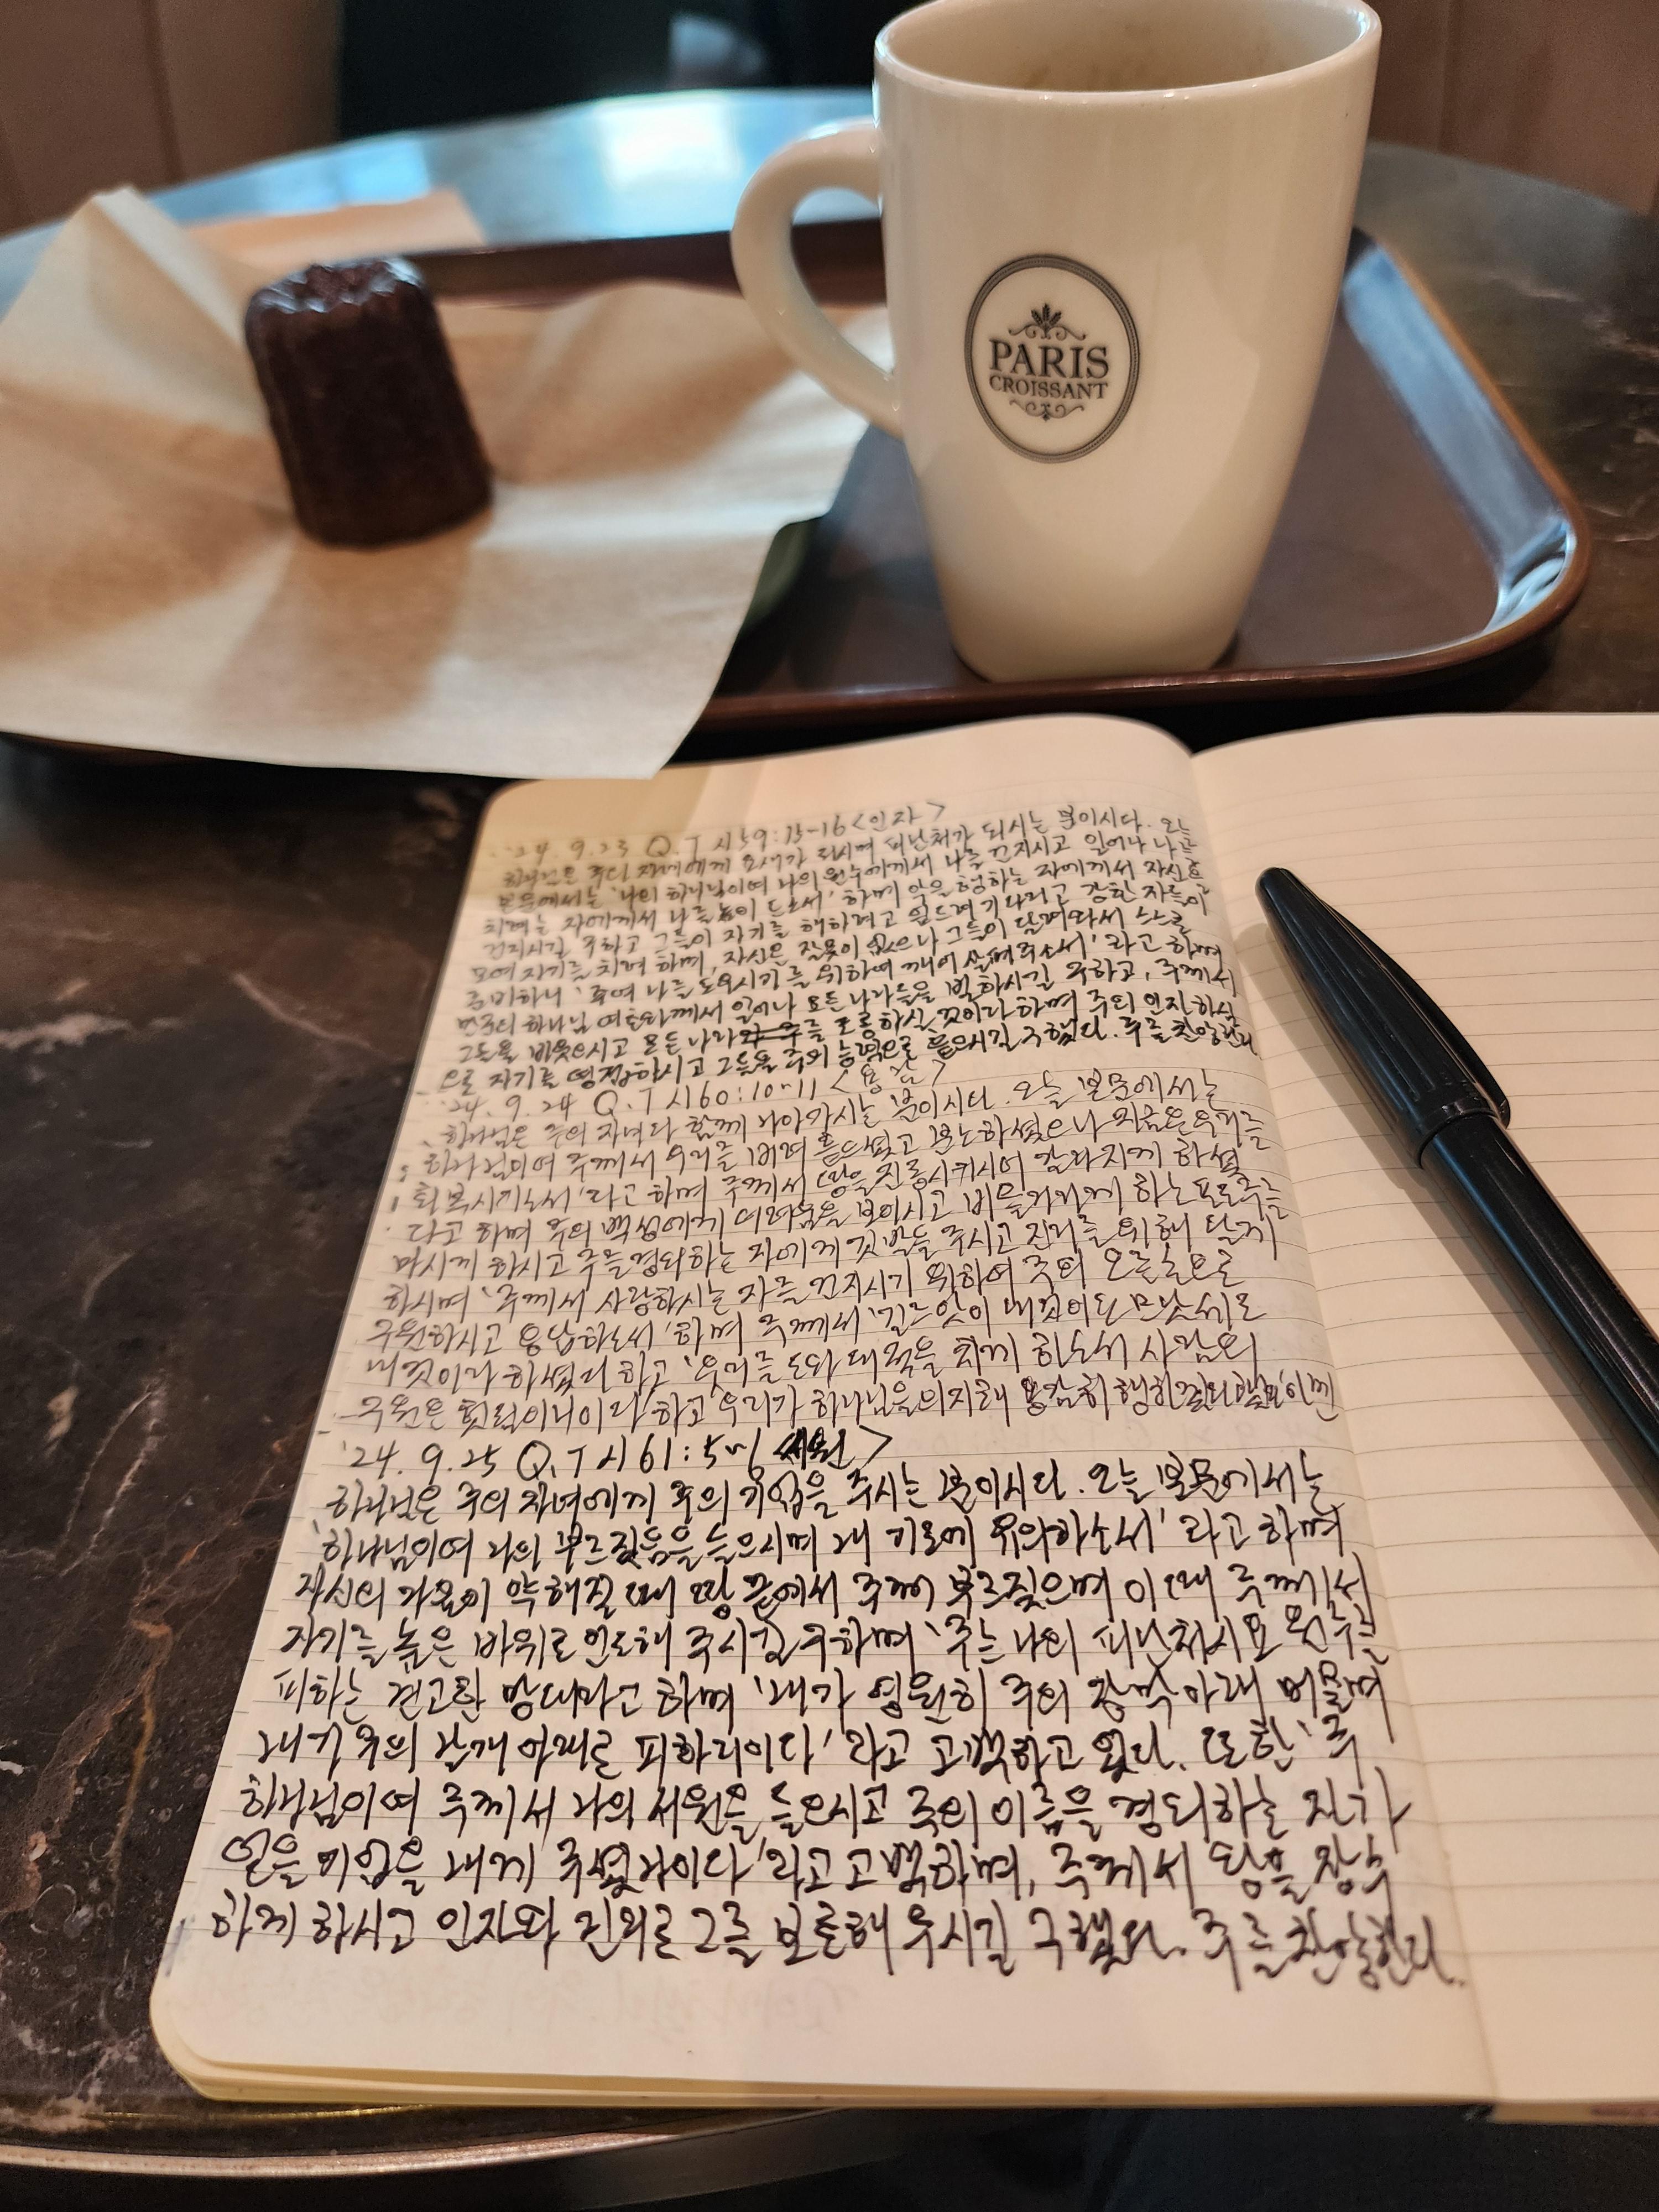 PARIS
CROISSANT
'24. 9. 23 Q.T 시59:15-16 <인자>
되시며 피난처가 되시는 분이시다. 오늘
본문에서는 '나의 하나님이여 나의 원수에게서 나를 건지시고 일어나
치려는 자에게서 나를 높이 드소서' 하며 악을 행하는 자에게서
건지시길 구하고 그들이 자기를 해하려고 엎드려 기다리고 강한 자들이
모여 자기를 치려 하며, 자신은 잘못이 없으나 그들이 달려와서 스스로
준비하니 '주여 나를 도우시기를 위하여 깨어 살펴주소서' 라고 하며
하나님 여호와께서 일어나 모든 나라들을 벌하시길 구하고, 주께서
그들을 비웃으시고 모든 나라를 조롱하실 것이라 하며 주의 인자하심
으로 자기를 영접하시고 그들을 주의 능력으로 흩으시길 구했다. 주를 찬양한다
'24. 9. 24 Q.T 시60:10-11 <용감>
하나님은 주의 자녀와 함께 나아가시는 분이시다. 오늘 본문에서는
'하나님이여 주께서 우리를 버려 흩으셨고 분노하셨으나 지금은 우리를
회복시키소서' 라고 하며 주께서 땅을 진동시키시어 갈라지게 하셨
다고 하며 주의 백성에게 어려움을 보이시고 비틀거리게 하는 포도주를
마시게 하시고 주를 경외하는 자에게 깃발을 주시고 진리를 위해 달게
하시며 '주께서 사랑하시는 자를 건지시기 위하여 주의 오른손으로
구원하시고 응답하소서' 하며 주께서 '길르앗이 내것이요 므낫세도
내것이라 하셨다 하고 '우리를 도와 대적을 치게 하소서 사람의
구원은 헛됨이니이다' 하고 우리가 하나님을 의지해 용감히 행하
'24. 9. 25 Q.T 시61:5~6 <서원>
하나님은 주의 자녀에게 주의 기업을 주시는 분이시다. 오늘 본문에서는
'하나님이여 나의 부르짖음을 들으시며 내 기도에 유의하소서' 라고 하며
자신의 마음이 약해질 때 땅 끝에서 주께 부르짖으며 이때 주께서
자기를 높은 바위로 인도해 주시길 구하며 '주는 나의 피난처시요 원수를
피하는 견고한 망대라고 하며 '내가 영원히 주의 장막 아래 머물며
내가 주의 날개 아래로 피하리이다' 라고 고백하고 있다. 또한 '주
하나님이여 주께서 나의 서원을 들으시고 주의 이름을 경외하는 자가
얻을 기업을 내게 주셨나이다' 라고 고백하며, 주께서 왕을 장수
하게 하시고 인자와 진리로 그를 보호해 주시길 구했다. 주를 찬양한다.